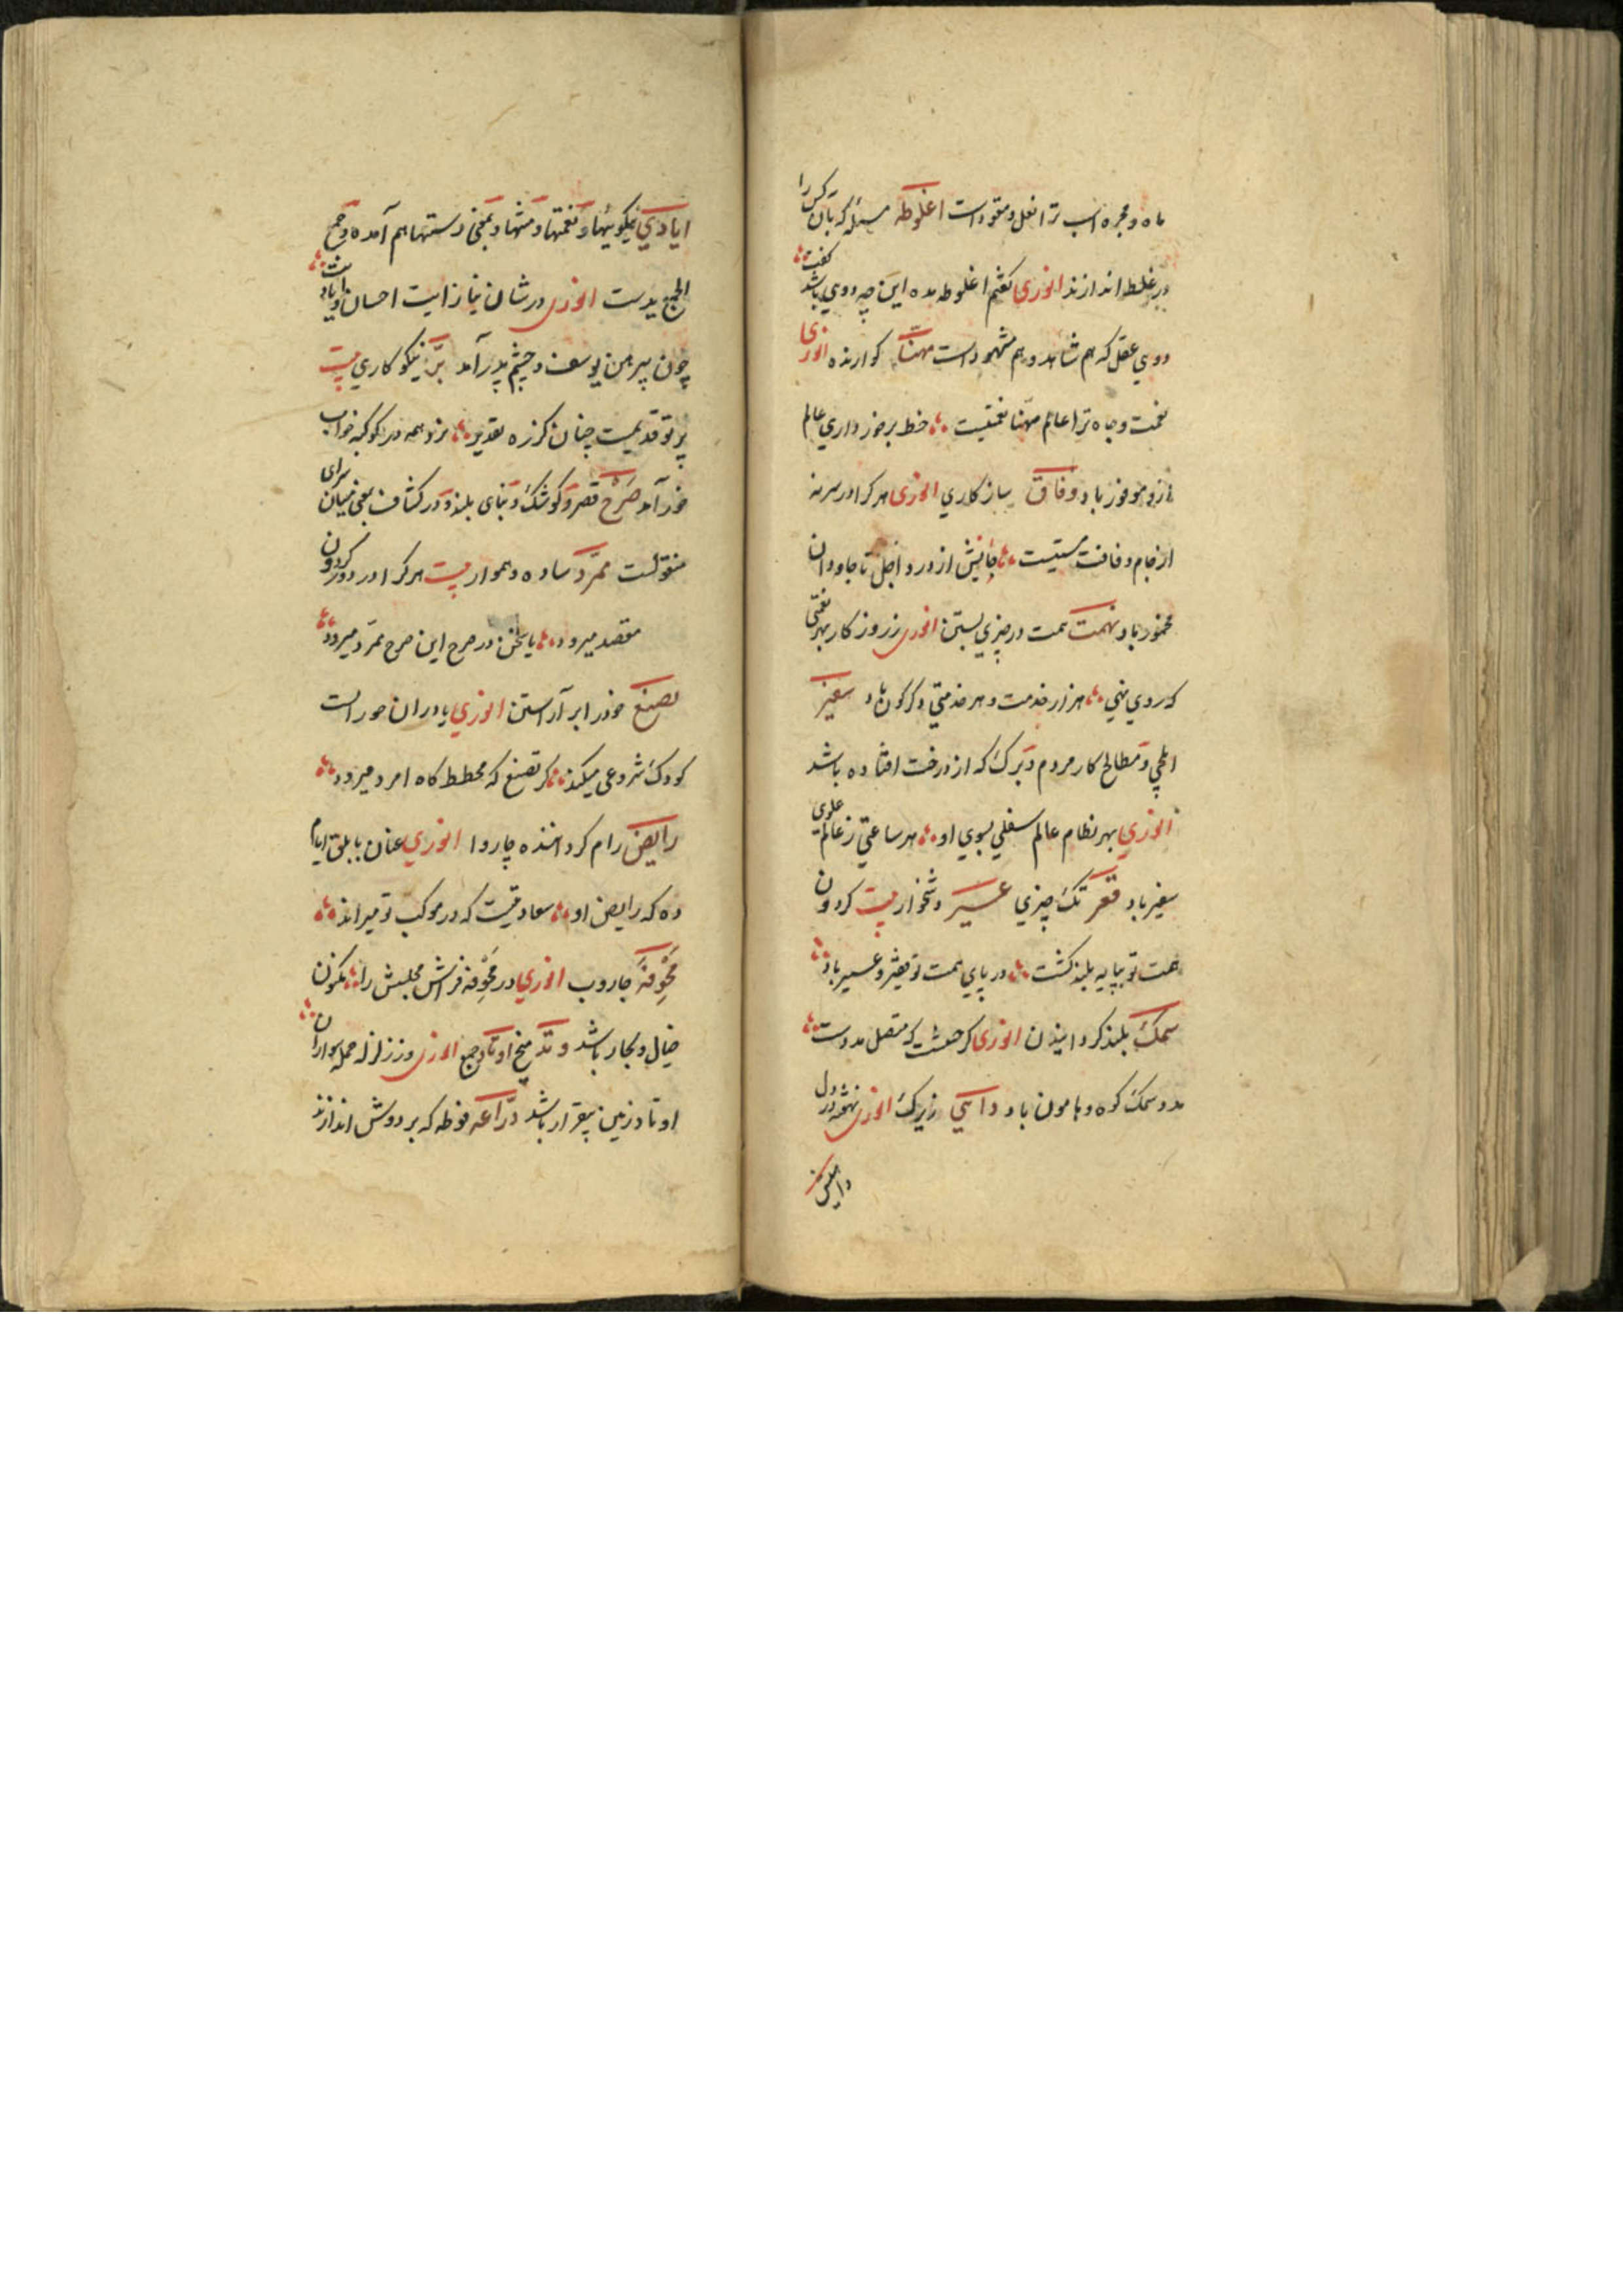 ماه و مجره اسب ترا نعل و مقود است اغلوطه مسئله که بآن کس را
در غلط اندازند انوری گفتم اغلوطه مده این چه دویی باشد گفت
دویی عقل که هم شاهد و هم مشهود است مهنّا گوارنده انوری
نعمت و جاه ترا عالم مهنا نعمتیست خط برخورداری عالم
ازو موفور باد وفاق سازکاری انوری هر کرا در سر نه
از جام وفاقت مستیست جانش از درد اجل تا جاودان
مخمور باد نهمت همت در چیزی بستن انوری روزگار بهر نهمتی
که روی نهی هزار خدمت و هر خدمتی دگرگون باد سفیر
ایلچی و مصالح کار مردم و برگ که از درخت افتاده باشد
انوری بهر نظام عالم سفلی بسوی او هر ساعتی ز عالم علوی
سفیر باد قعر تک چیزی عسیر دشخوار بیت گردون
همت تو بپایه بلند گشت در پای همت تو قعر و عسیر باد
سمک بلند گردانیدن انوری گر متصل مدد است
مدد سمک کوه و هامون باد داهی زیرک انوری نهفته در دل
ایادی نیکوییها و نعمتها و منتها و بمعنی دستها هم آمده و جمع
الجمع یدست انوری در شان نیاز آیت احسان و ایادیت
چون پیرهن یوسف و چشم پدر آمد برّ نیکوکاری بیت
بر تو قدیمست چنان کز ره تقدیر نزد همه در کوکبه خواب
خور آمد صَرْح قصر و کوشک و بنای بلند و در کشاف بمعنی میان سرای
منقولست ممرّد ساده و هموار بیت هر کرا در دور گردون
مقصد میرود یا سخن در صرح این صرح ممرّد میرود
تصنع خود را بر آراستن انوری یا دران حوراست
کودک شروعی میکند کر تصنع که مخطط گاه امرد میرود
رایض رام گرداننده چاروا انوری عنان بابلق ایام
ده که رایض او سعادتیست که در موکب تو میراند
مُخْوِفَه جاروب انوری در مخوفه فراش مجلسش را نگون
خیال و بجار باشد وتد میخ اوتاد جمع انوری وز زلزله حمله سواران
اوتاد زمین بیقرار باشد درّاعه فوطه که بر دوش اندازند